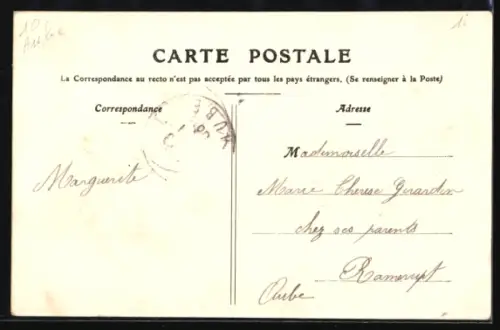 10
CARTE POSTALE
La Correspondance au recto n'est pas acceptée par tous les pays étrangers. (Se renseigner à la Poste)
Correspondance
Adresse
AUBE
Marguerite
Mademoiselle
Marie Therese Girardin
chez ses parents
Ramerupt
Aube